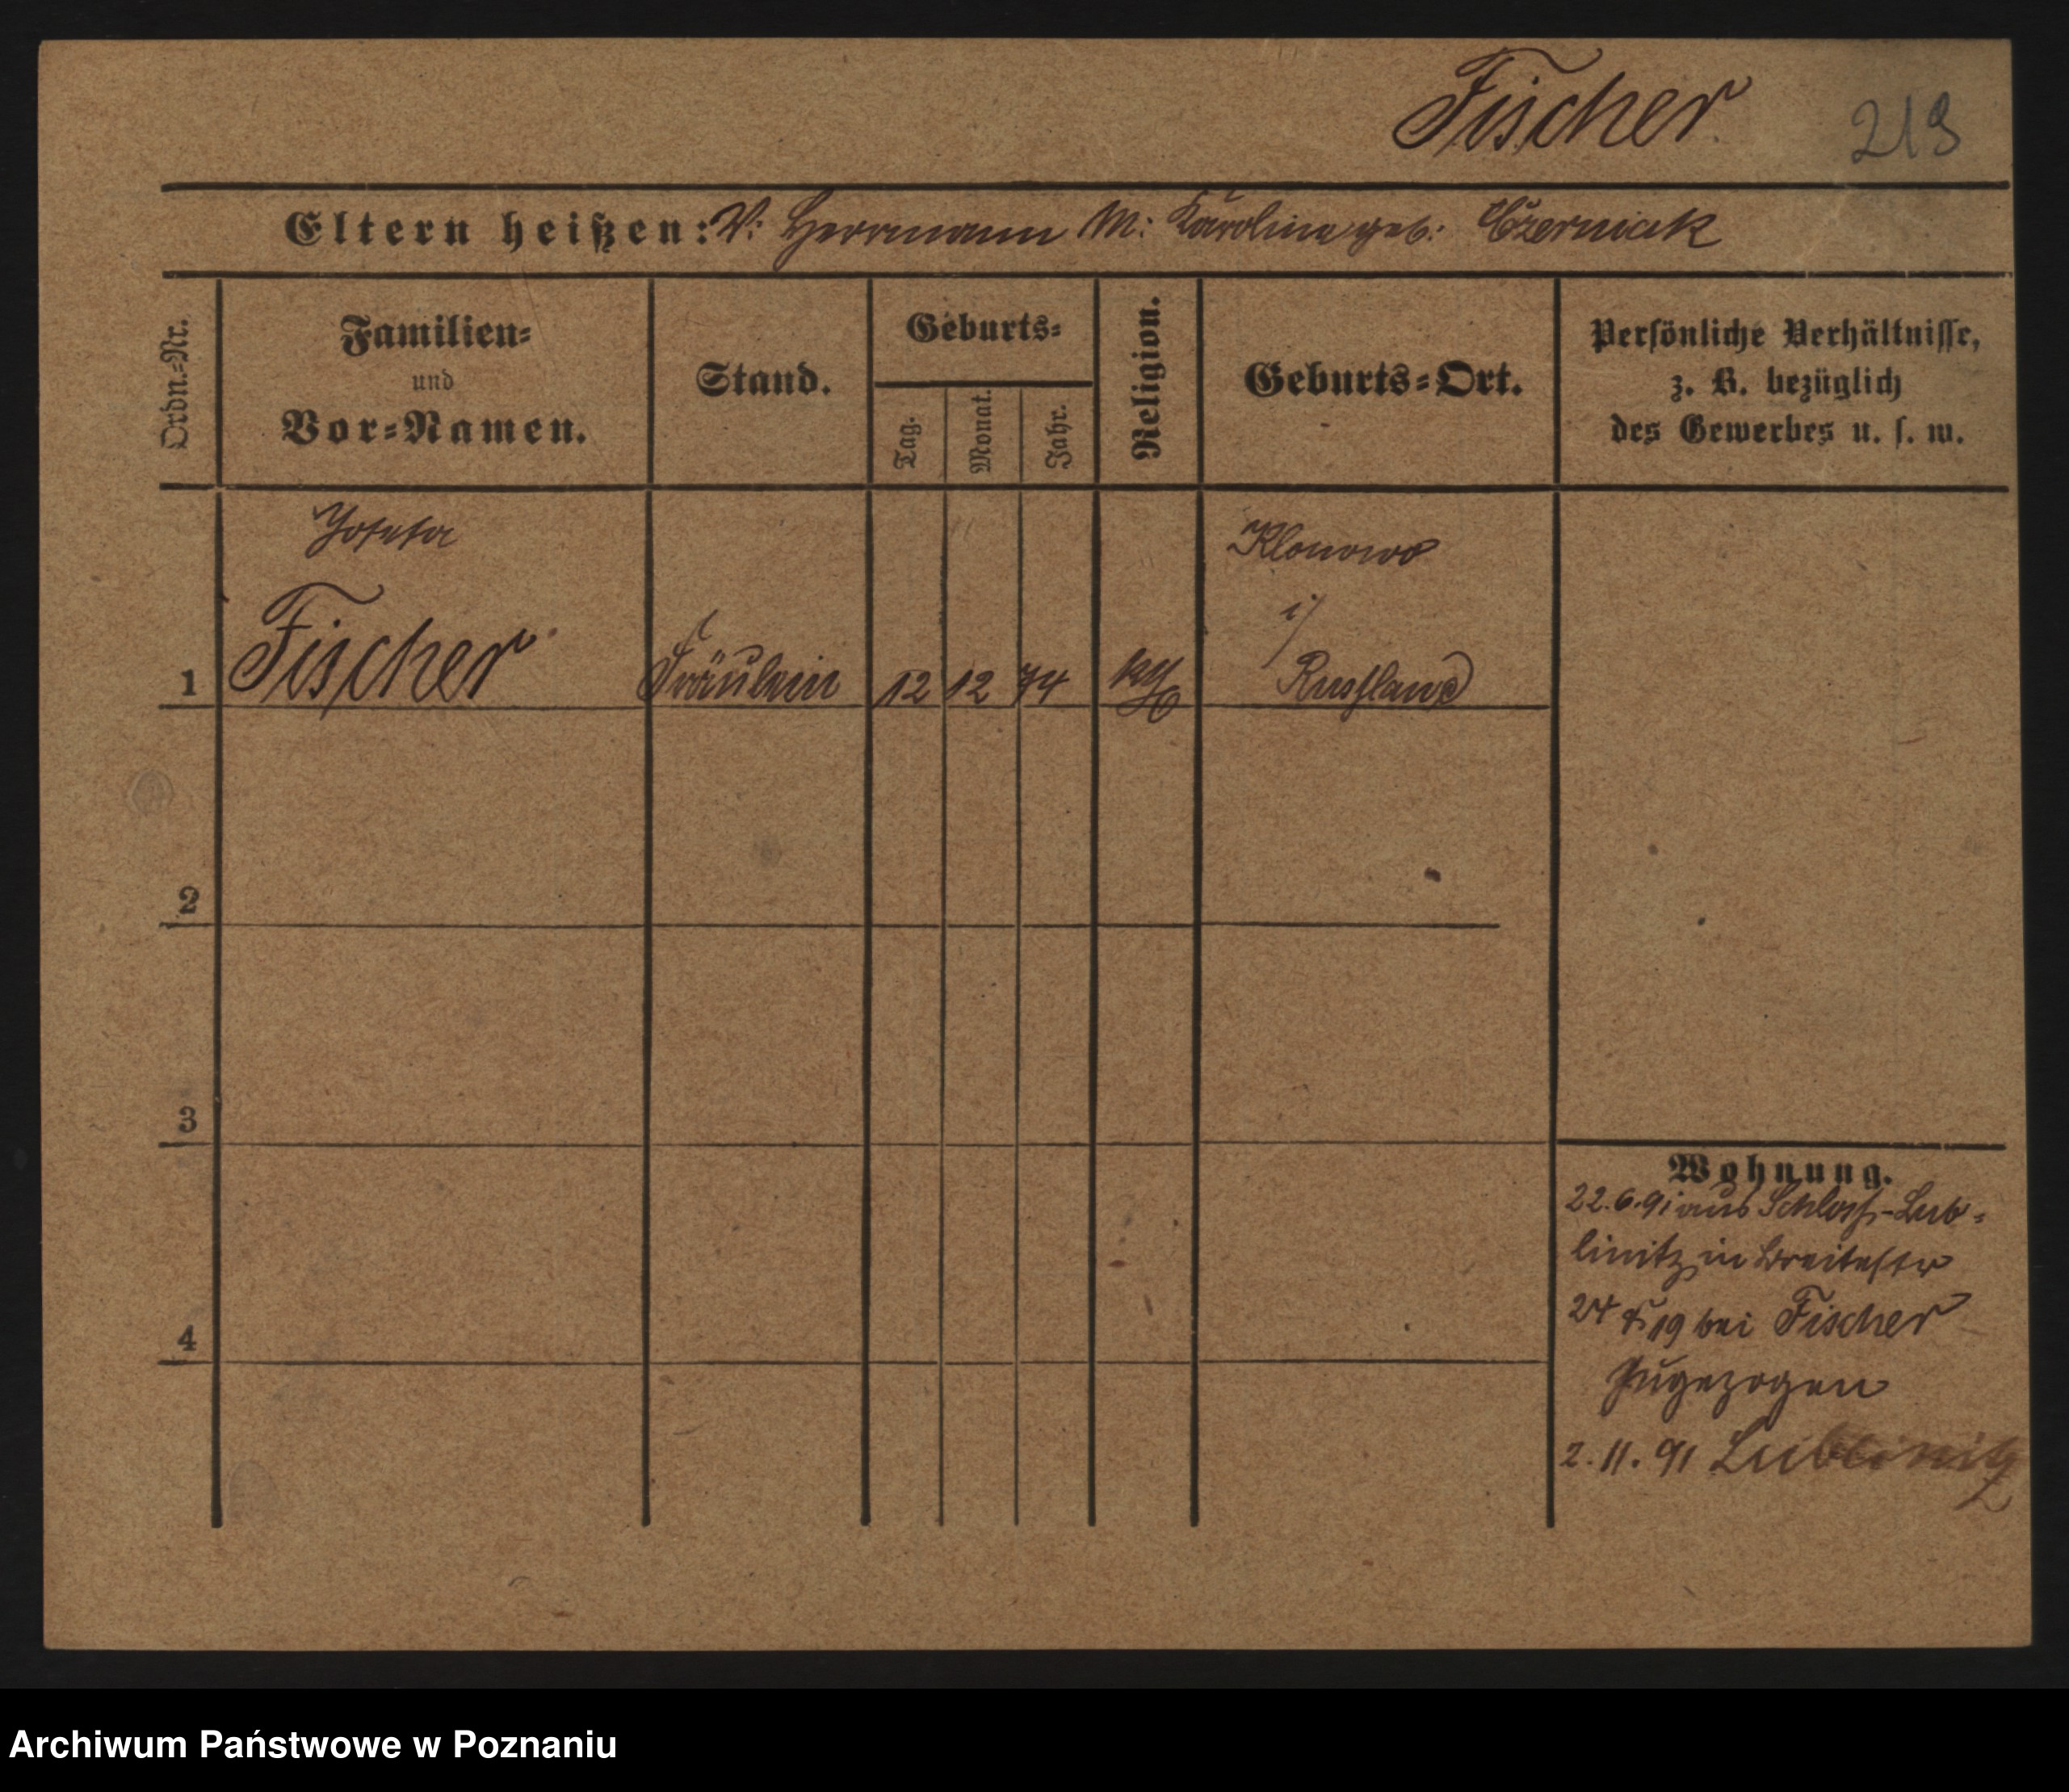 Fischer
213
Eltern heißen: V: Herrmann M: Karolina geb: Czerniak
Ordn.-Nr.
Familien-
und
Vor-Namen.
Stand.
Geburts-
Tag.
Monat.
Jahr.
Religion.
Geburts-Ort.
Persönliche Verhältnisse,
z. B. bezüglich
des Gewerbes u. s. w.
Josefa
Klonowo
i/
1 Fischer Fräulein 12 12 74 Russland
2
3
4
Wohnung.
22.6.91 aus Schloss-Lub-
linitz in Breitestr
24 & 19 bei Fischer
zugezogen
2.11.91 Lublinitz
Archiwum Państwowe w Poznaniu